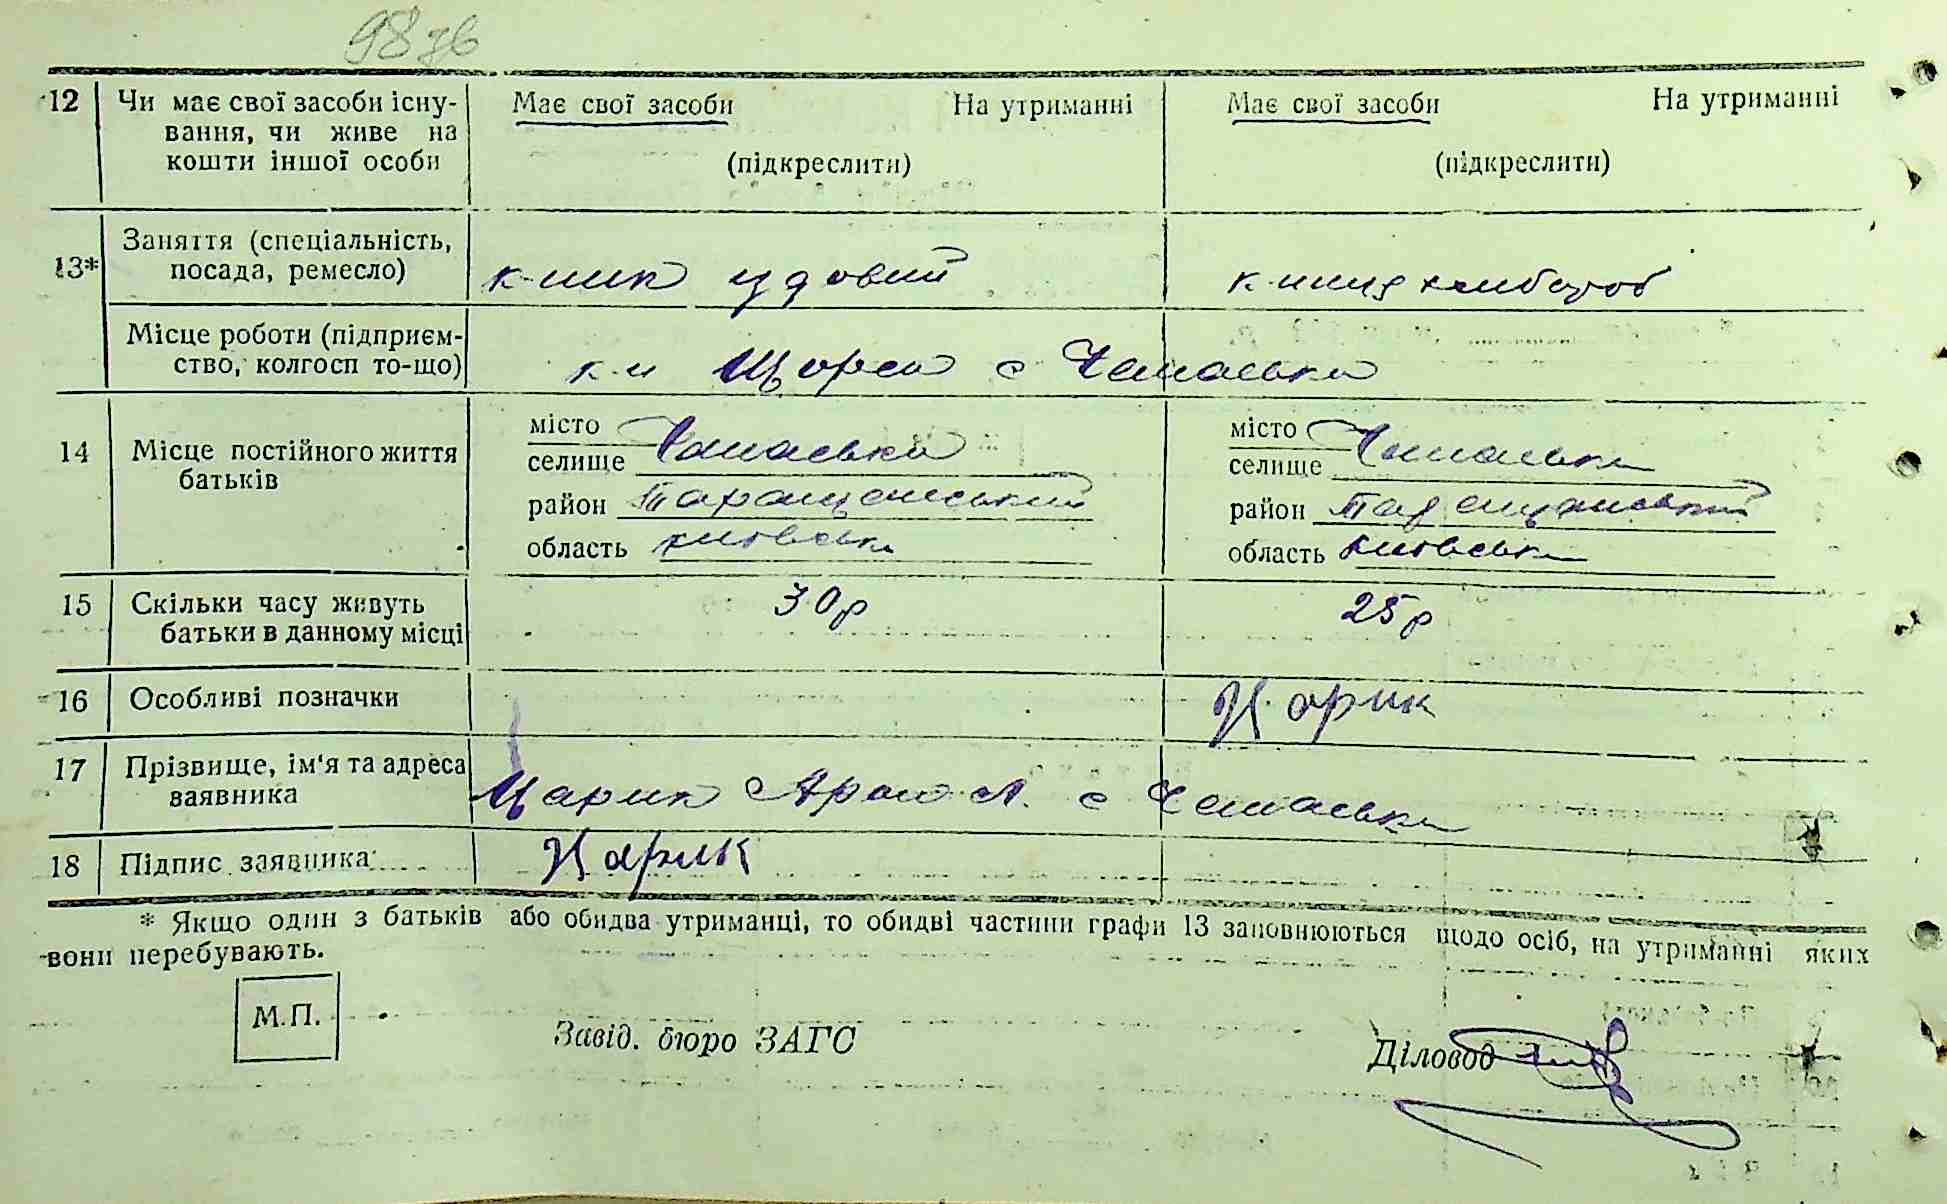 98 зв
12 Чи має свої засоби існу-
вання, чи живе на
кошти іншої особи
Має свої засоби На утриманні
(підкреслити)
Має свої засоби На утриманні
(підкреслити)
13* Заняття (спеціальність,
посада, ремесло)
к-ник їздовий
к-ниця
Місце роботи (підприєм-
ство, колгосп то-що)
к-п Щорса с
14 Місце постійного життя
батьків
місто
селище
район Таращанський
область Київська
місто
селище
район Таращанський
область Київська
15 Скільки часу живуть
батьки в данному місці
30 р
25 р
16 Особливі позначки
Царик
17 Прізвище, ім'я та адреса
заявника
Царик А. с
18 Підпис заявника
Царик
* Якщо один з батьків або обидва утриманці, то обидві частини графи 13 заповнюються щодо осіб, на утриманні яких
вони перебувають.
М.П.
Завід. бюро ЗАГС
Діловод